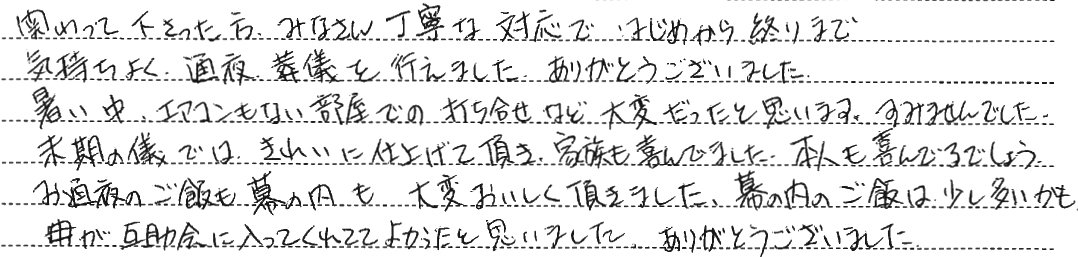 関わって下さった方、みなさん丁寧な対応で はじめから終りまで
気持ちよく、通夜、葬儀を行えました。ありがとうございました。
暑い中、エアコンもない部屋での打ち合せなど大変だったと思います。すみませんでした。
末期の儀では、きれいに仕上げて頂き、家族も喜んでました。本人も喜んでるでしょう。
お通夜のご飯も幕の内も 大変おいしく頂きました、幕の内のご飯は少し多いかも、
母が互助会に入ってくれててよかったと思いました。ありがとうございました。